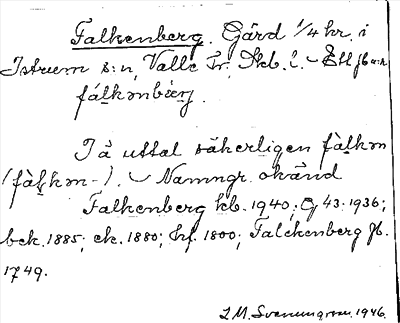 Falkenberg. Gård 1/4 hr. i
Istrum s:n, Valle hr, Skb. l. – Ett jb:n:r
fálkmbærj.
I ä. uttal säkerligen fàlkm
(fàlkm-). – Namngr. okänd
Falkenberg kb. 1940; Gj 43: 1936;
bek. 1885; ek. 1880; hf. 1800; Falckenberg jb.
1749.
L. M. Svenungsson. 1946.